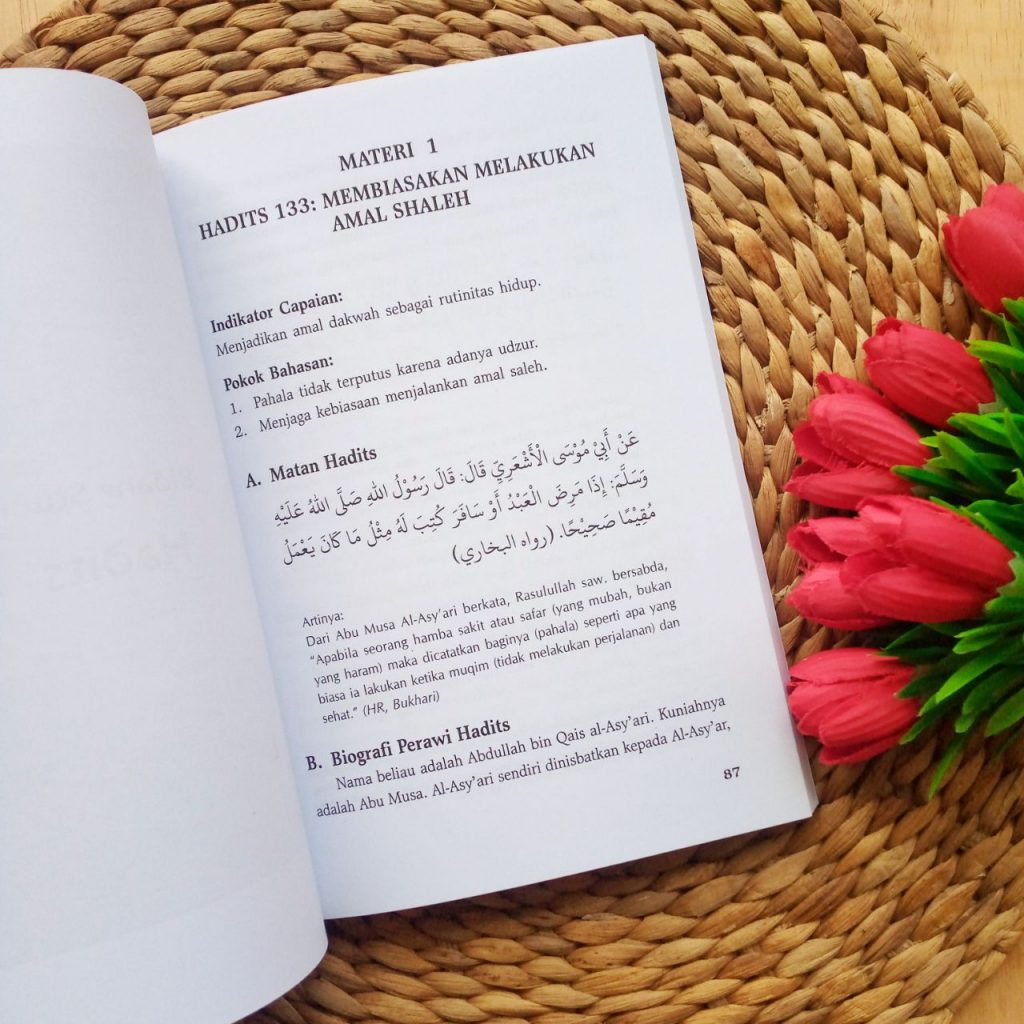 MATERI 1
HADITS 133: MEMBIASAKAN MELAKUKAN
AMAL SHALEH
Indikator Capaian:
Menjadikan amal dakwah sebagai rutinitas hidup.
Pokok Bahasan:
1. Pahala tidak terputus karena adanya udzur.
2. Menjaga kebiasaan menjalankan amal saleh.
A. Matan Hadits
عَنْ أَبِيْ مُوْسَى الْأَشْعَرِيِّ قَالَ: قَالَ رَسُوْلُ اللهِ صَلَّى اللهُ عَلَيْهِ
وَسَلَّمَ: إِذَا مَرِضَ الْعَبْدُ أَوْ سَافَرَ كُتِبَ لَهُ مِثْلُ مَا كَانَ يَعْمَلُ
مُقِيْمًا صَحِيْحًا. (رواه البخاري)
Artinya:
Dari Abu Musa Al-Asy'ari berkata, Rasulullah saw. bersabda,
"Apabila seorang hamba sakit atau safar (yang mubah, bukan
yang haram) maka dicatatkan baginya (pahala) seperti apa yang
biasa ia lakukan ketika muqim (tidak melakukan perjalanan) dan
sehat." (HR, Bukhari)
B. Biografi Perawi Hadits
Nama beliau adalah Abdullah bin Qais al-Asy'ari. Kuniahnya
adalah Abu Musa. Al-Asy'ari sendiri dinisbatkan kepada Al-Asy'ar,
87